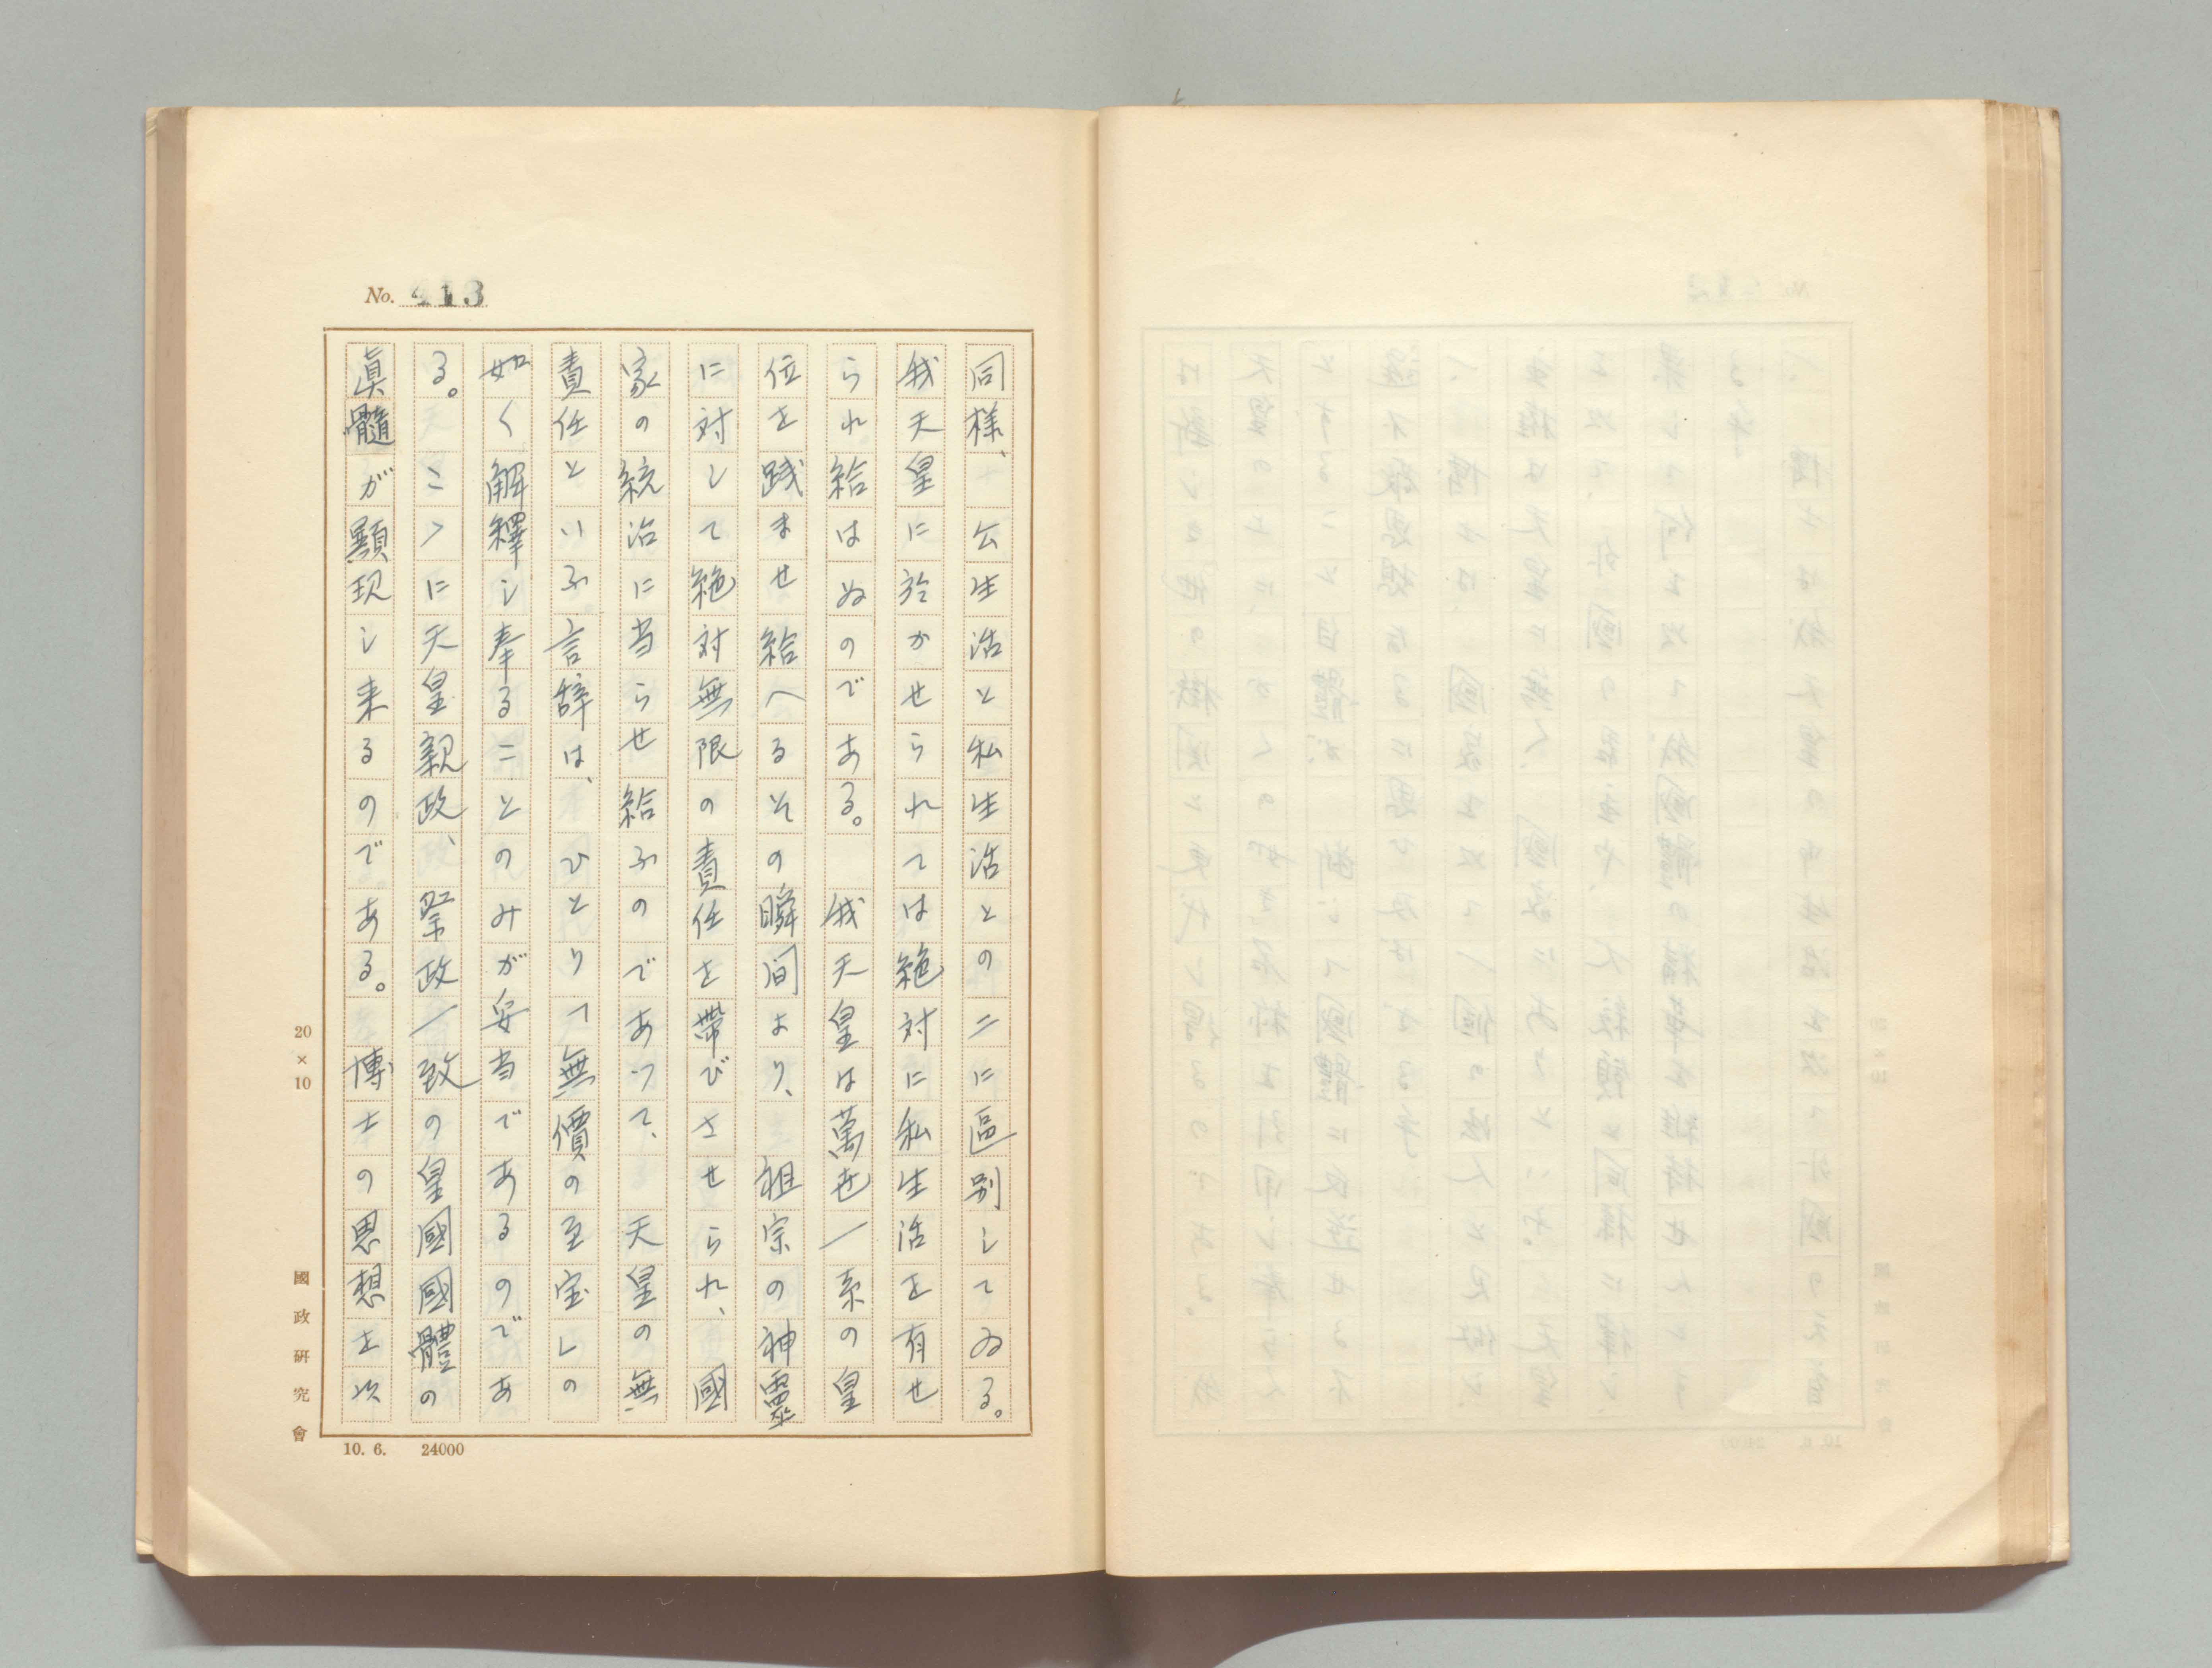 No. 413
同様、公生活と私生活との二に區別してゐる。
我天皇に於かせられては絶対に私生活を有せ
られ給はぬのである。我天皇は萬世一系の皇
位を践ませ給へるその瞬間より、祖宗の神靈
に対して絶対無限の責任を帯びさせられ、國
家の統治に当らせ給ふのであつて、天皇の無
責任といふ言辞は、ひとり「無價の至宝」の
如く解釋し奉ることのみが妥当であるのであ
る。こゝに天皇親政、祭政一致の皇國國體の
眞髓が顯現し来るのである。博士の思想を次
20×10
國政研究會
10. 6. 24000